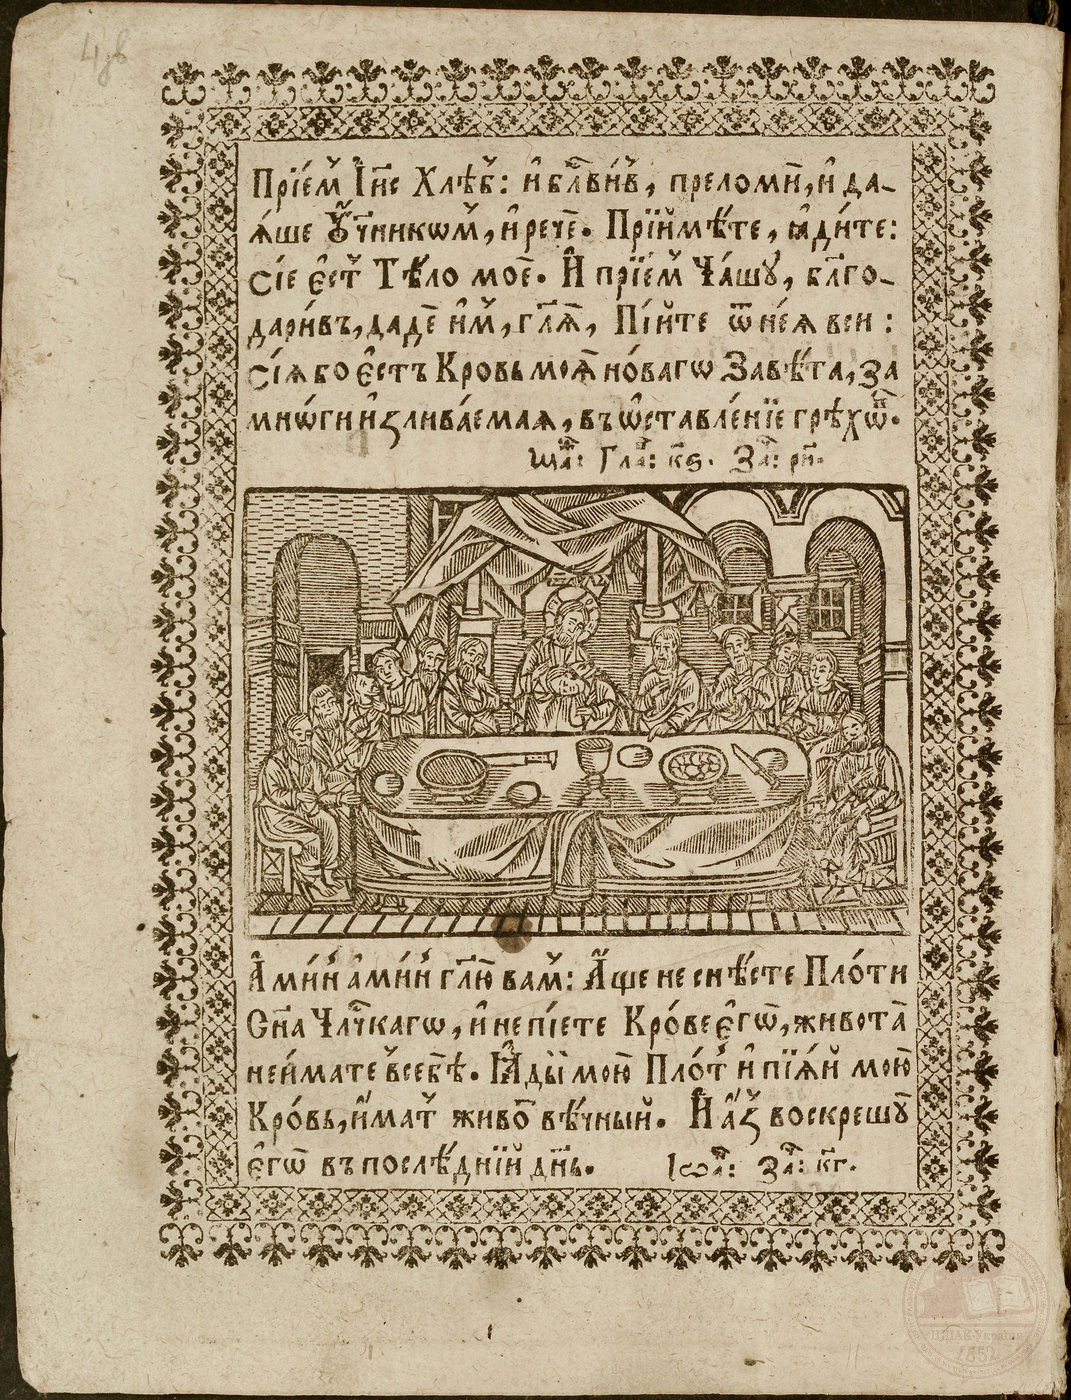 4зв
Прїе́мⷨ І҆и҃с Хлѣ́бⷡ: и҆ бл҃ви́вⷡ, преломи̑, и҆ да-
ѧ́ше Ѹ҆ч҃нникѡмⷨ, и҆ рече̑. Прїи̑мѣ́те, ꙗ҆ди́те:
сїе є҆стⷮ Тѣ́ло мое̑. И҆ прїе́мⷨ Ча́шꙋ, бл҃го-
дари́въ, даде̑ и҆мⷨ, гл҃ѧ, Пі́йте ѿ нея́ вси:
сі́ѧ бо є҆стъ Кровь моѧ̑ но́вагѡ Завѣ́та, за
мнѡ́ги и҆зливаемая, въ ѡ҆ставле́нїе грѣхѡ́в.
Маⷴ: Глаⷡ: к҃ѕ. Заⷱ: р҃и.
А҆ми́нⷩ а҆ми́нⷩ гл҃ю вамⷨ: А҆́ще не снѣ́сте Пло́ти
Сн҃а Чл҃ческагѡ, и҆ не пїете Кро́ве є҆гѡ̑, живота̑
не и́мате в себѣ̀. Ꙗ҆ды́й мою̑ Пло́тⷮ и҆ пїѧ́й мою̑
Кро́вь, и҆́матⷮ живоⷮ вѣ́чный. И҆ а҆́зⷥ воскрешꙋ̑
є҆гѡ̑ въ послѣ́днїй дн҃ь. Іѡаⷩ: Заⷱ: к҃г.